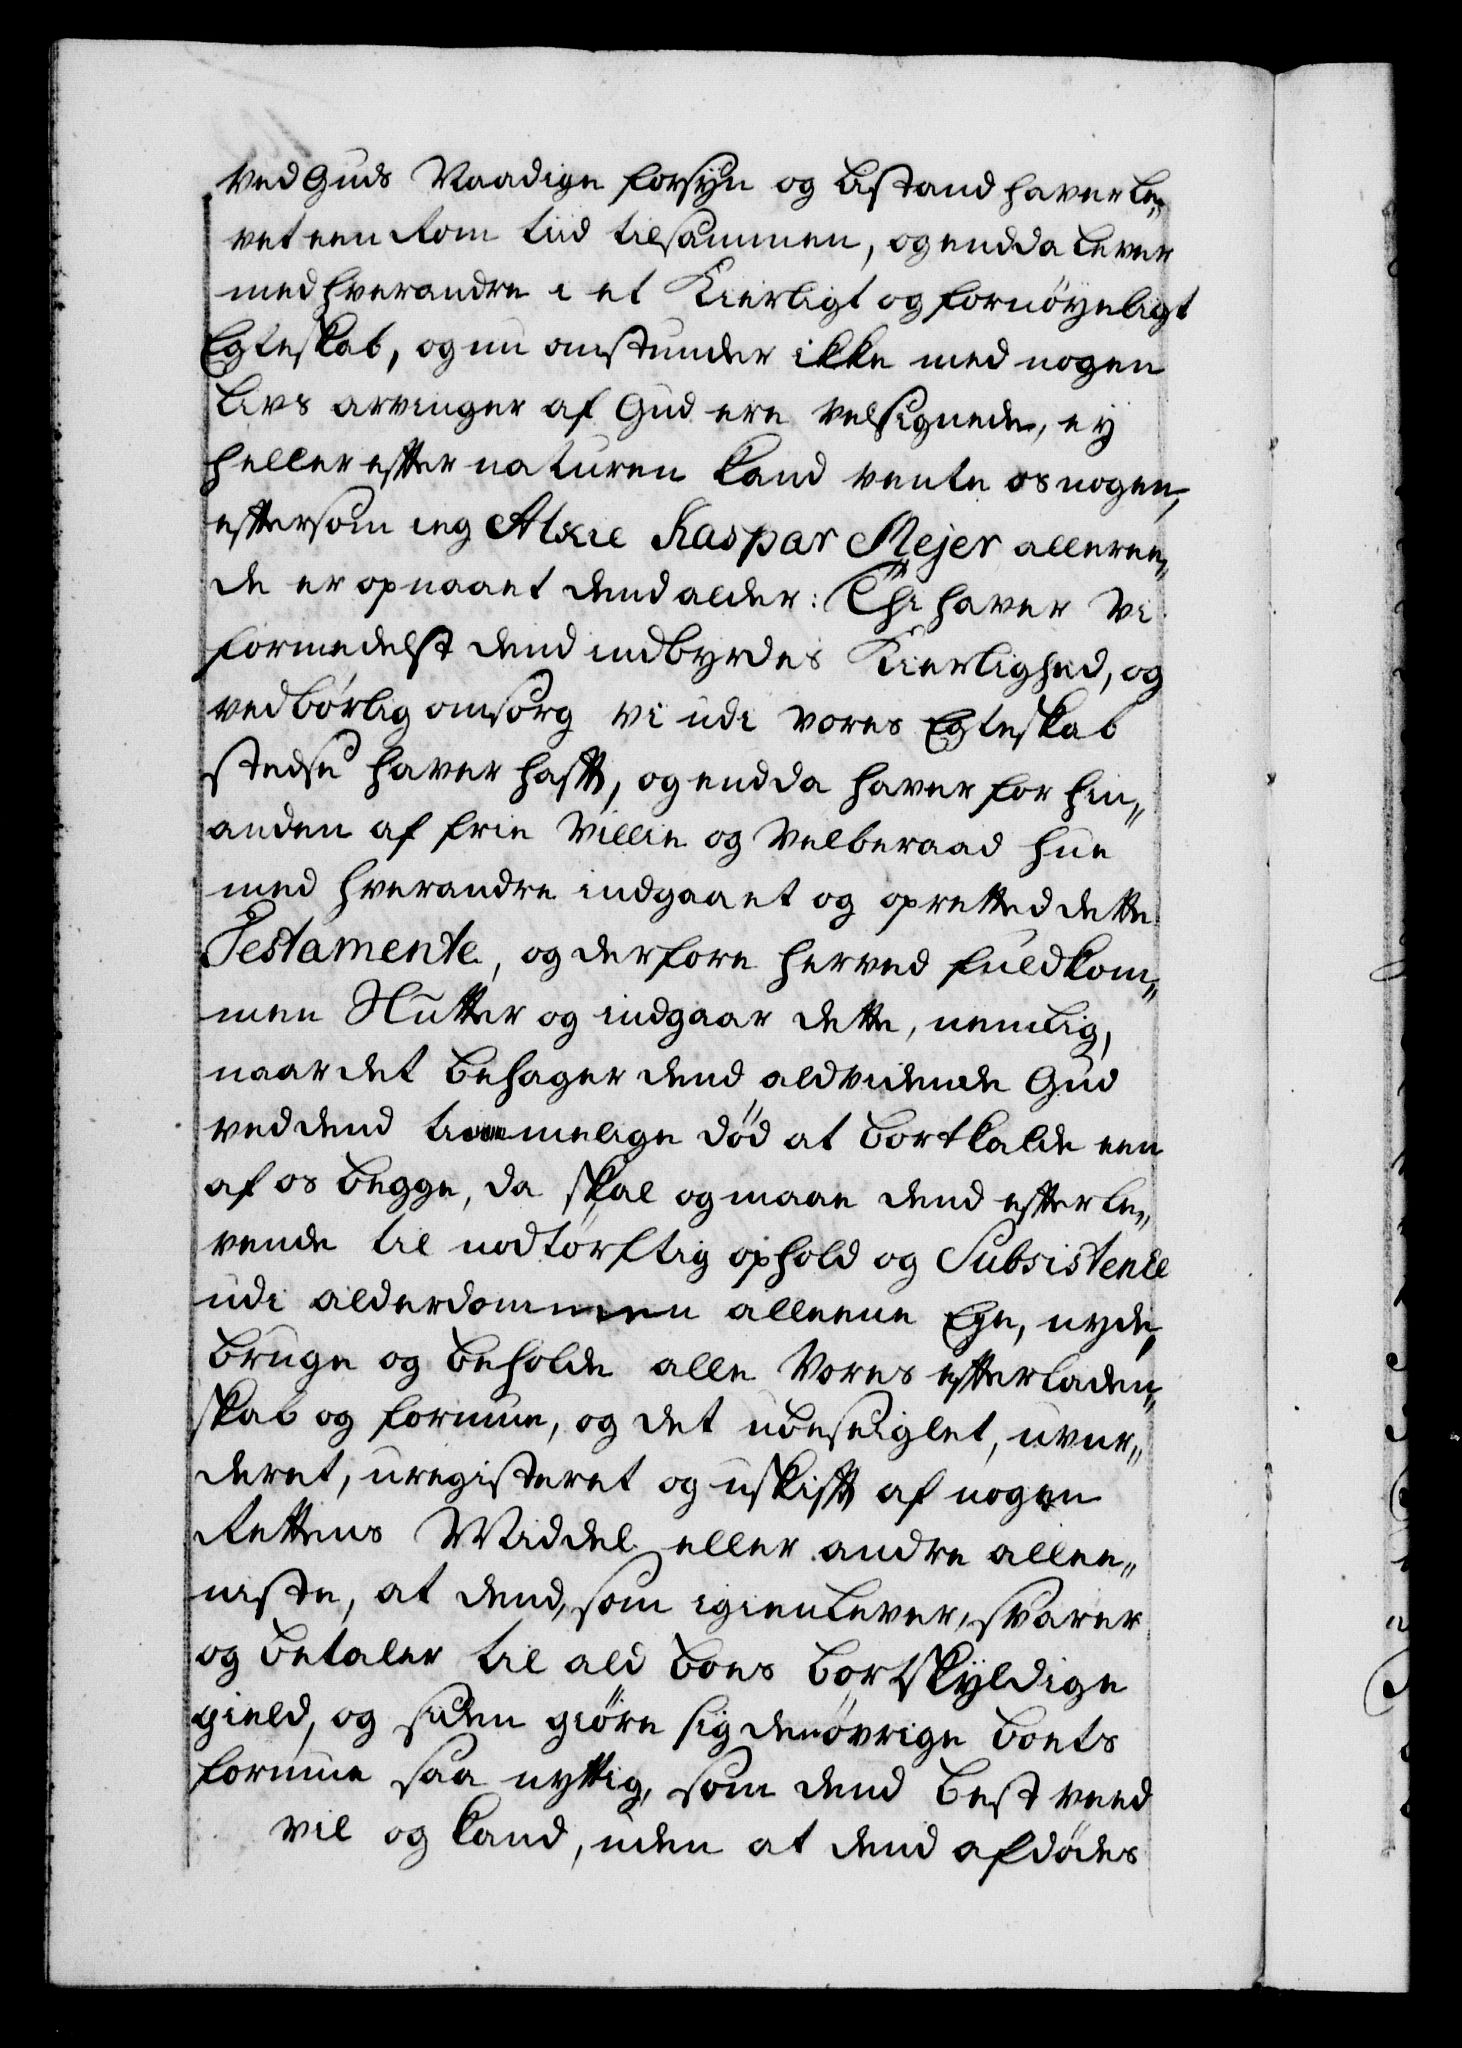 ved Guds Naadige forsÿn og bistand haver le„
vet een Rom tiid tilsammen, og endda lever
med hverandre i et Kierligt og fornøyeligt
Egteskab, og nu omstunder ikke med nogen
livs arvinger af Gud ere velsignede, ey
heller effter naturen kand vente os nogen,
effersom ieg Alxie Kaspar Mejer alleree„
de er opnaaet dend alder: Thi haver vi
formedelst dend indbyrdes Kierlighed, og
vedbørlig omsorg vi udi vores Egteskab
stedse haver hafft, og endda haver for hin„
anden af frie villie og velberaad hue
med hverandre indgaaet og opretted dette
Testamente, og derfore herved fuldkom„
men slutter og indgaar dette, nemlig,
naar det behager dend aldvidende Gud
ved dend timmelige død at bortkalde een
af os begge, da skal og maae dend effterle„
vende til nodtørftig ophold og Subsistence
udi alderdommen alleene Eye, nyde,
bruge og beholde alle vores effterladen„
skab og formue, og det ubeseiglet, uvur„
deret, uregisteret og uskifft af nogen
Rettens Middel eller andre allee„
niste, at dend, som igienlever, svarer
og betaler til ald boes bortskÿldige
gield, og siden giøre sig den øvrige boets
formue saa nyttig, som dend best veed
vil og kand, uden at dend afdødes